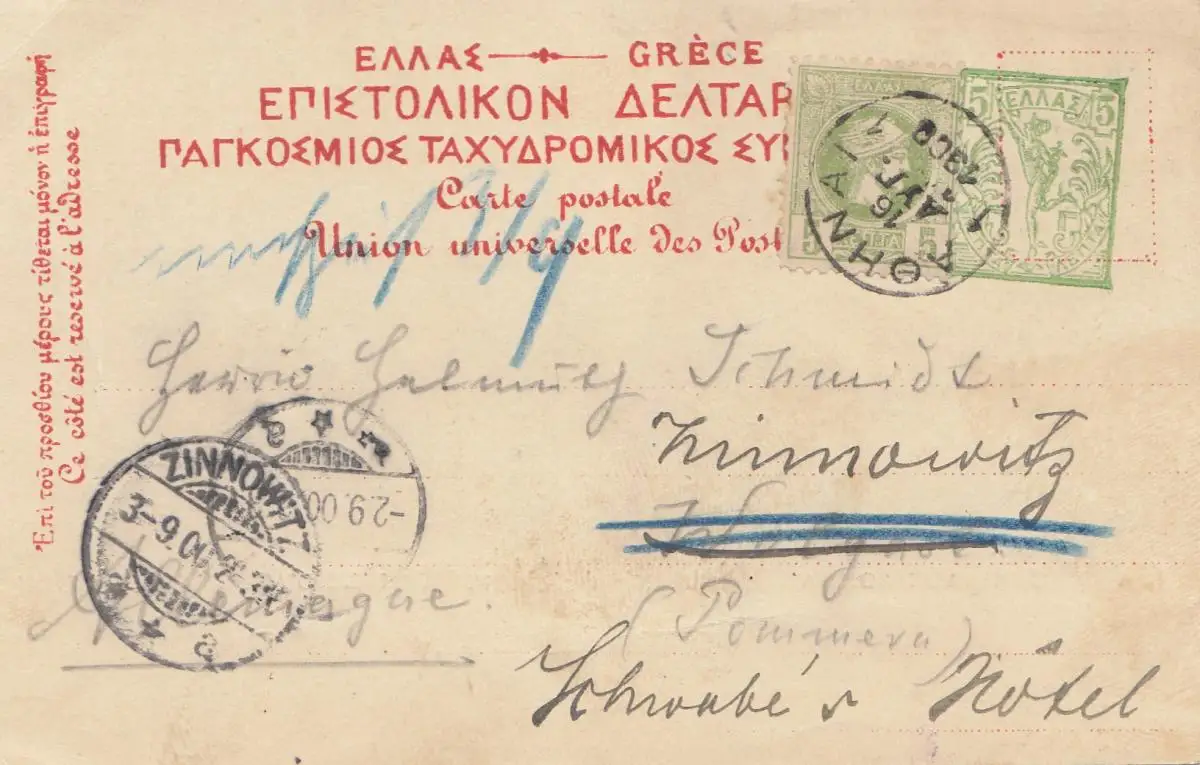 ΕΛΛΑΣ GRÈCE
ΕΠΙΣΤΟΛΙΚΟΝ ΔΕΛΤΑΡ
ΠΑΓΚΟΣΜΙΟΣ ΤΑΧΥΔΡΟΜΙΚΟΣ ΣΥ
Carte postale
Union universelle des Post
Ἐπὶ τοῦ προσθίου μέρους τίθεται μόνον ἡ ἐπιγραφή
Ce côté est reservé à l'adresse
ΕΛΛΑΣ
5 5
5 ΕΛΛΑΣ 5
ΑΘΗΝΑΙ 1
16
ΑΥΓ.
1900
3/9
Herrn Helmuth Schmidt
Zinnowitz
(Pommern)
Allemagne.
Schwabe's Hôtel
ZINNOWITZ
3-9 00
a
-2.9.00
a